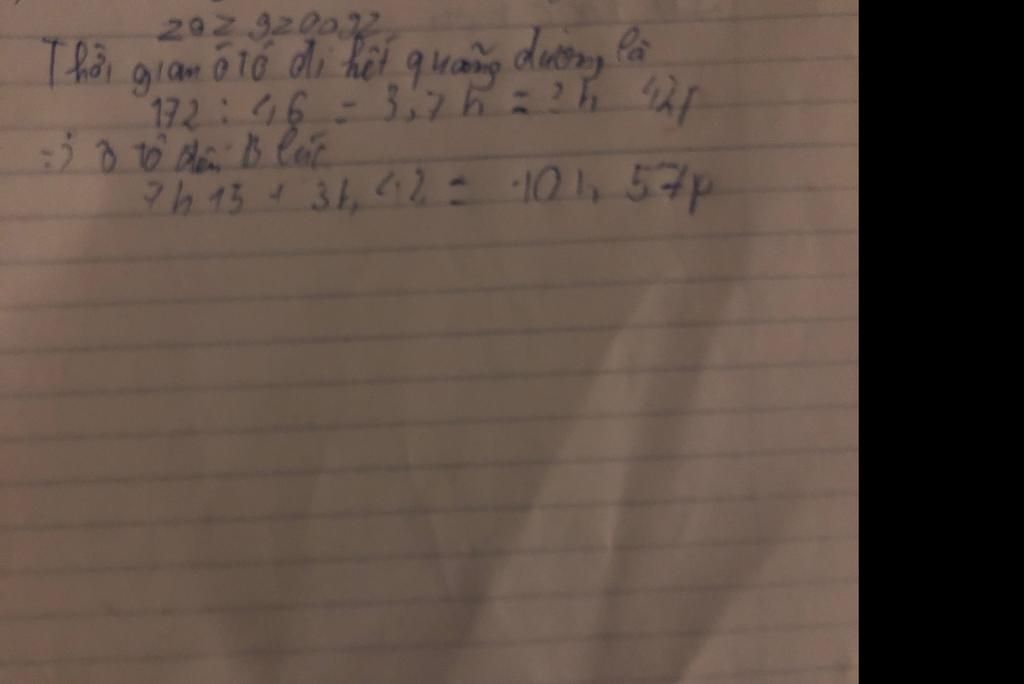 202 920032
Thời gian ô tô đi hết quãng đường là
172 : 46 = 3,7 h = 3h 42p
=> ô tô đến B lúc
7h 15 + 3h 42 = 10h 57p